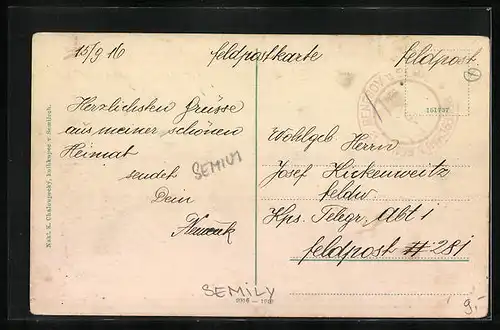 15/9 16
Feldpostkarte
Feldpost
161737
Herzlichsten Grüsse
aus meiner schönen
Heimat
sendet
Dein
SEMILY
Wohlgeb Herrn
Josef Kickenweitz
Feldw
Kps. Telegr. Abt 1
Feldpost # 281
Nakl. K. Chaloupecký, knihkupec v Semilech.
SEMILY
1907
9.-